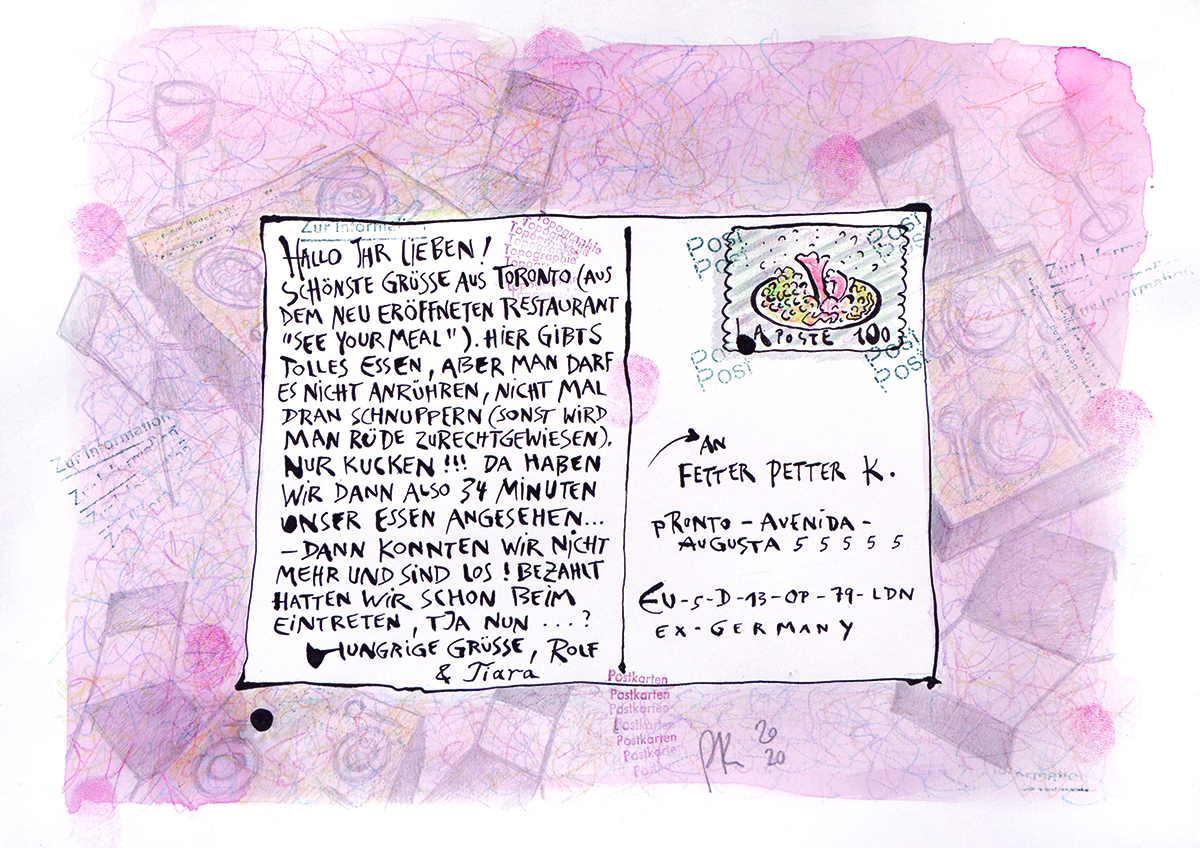 Zur Information
HALLO IHR LIEBEN!
SCHÖNSTE GRÜSSE AUS TORONTO (AUS
DEM NEU ERÖFFNETEN RESTAURANT
"SEE YOUR MEAL"). HIER GIBTS
TOLLES ESSEN, ABER MAN DARF
ES NICHT ANRÜHREN, NICHT MAL
DRAN SCHNUPPERN (SONST WIRD
MAN RÜDE ZURECHTGEWIESEN).
NUR KUCKEN!!! DA HABEN
WIR DANN ALSO 34 MINUTEN
UNSER ESSEN ANGESEHEN...
– DANN KONNTEN WIR NICHT
MEHR UND SIND LOS! BEZAHLT
HATTEN WIR SCHON BEIM
EINTRETEN, TJA NUN ...?
HUNGRIGE GRÜSSE, ROLF
& Tiara
Topographie
Topographie
Topographie
Topographie
Topographie
Post
Post
Post
Post
LA POSTE 100
Post
Post
Post
Post
AN
FETTER PETTER K.
PRONTO-AVENIDA-
AUGUSTA 5 5 5 5 5
EU-5-D-13-OP-79-LDN
EX-GERMANY
Zur Information
Zur Information
Zur Information
Zur Information
Information
Postkarten
Postkarten
Postkarten
Postkarten
Postkarten
Postkarte
PK 20
20